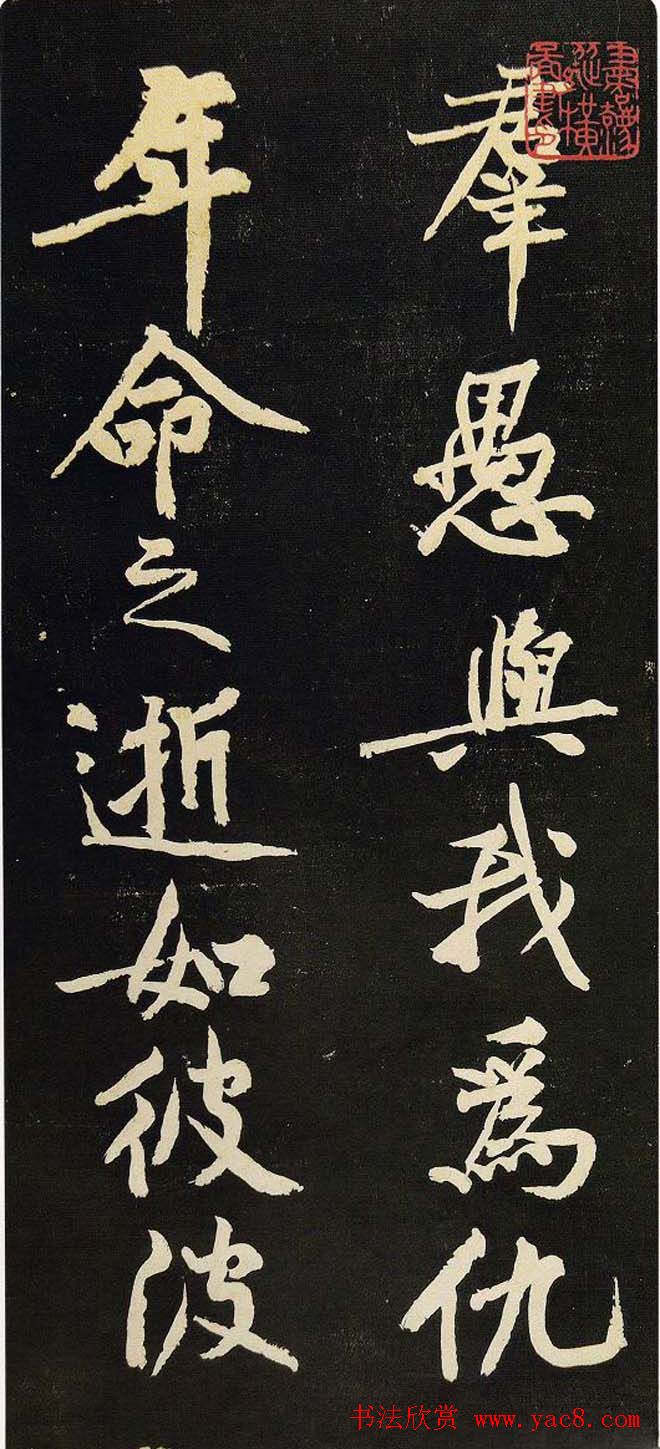 羣愚與我爲仇
年命之逝如彼波
书法欣赏 www.yac8.com